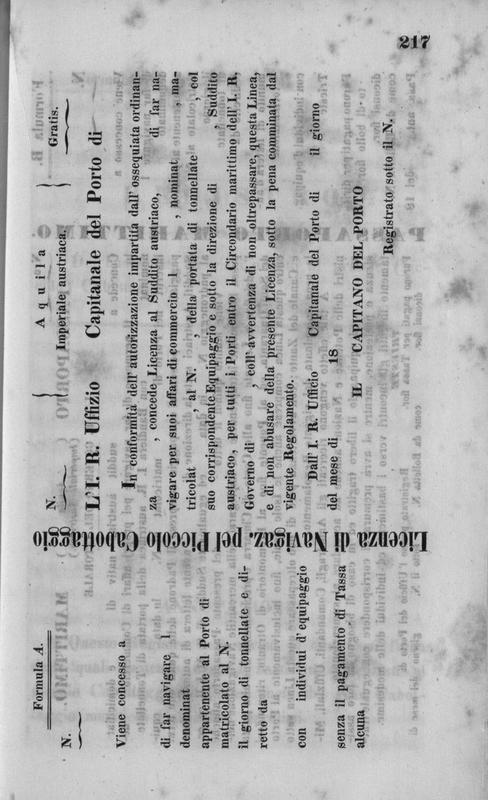 217
Formula A.
N.
Viene concesso a
di far navigare l
denominat
appartenente al Porto di
matricolato al N.
il giorno di tonnellate e di-
retto da
con individui d'equipaggio
senza il pagamento di Tassa
alcuna
Licenza di Navigaz. pel Piccolo Cabottaggio
N. } Aquila } Gratis.
Imperiale austriaca.
L'I. R. Uffizio Capitanale del Porto di
In conformità dell'autorizzazione impartita dall'ossequiata ordinan-
za , concede Licenza al Suddito austriaco, di far na-
vigare per suoi affari di commercio l , nominat , ma-
tricolat , al N. della portata di tonnellate , col
suo corrispondente Equipaggio e sotto la direzione di , Suddito
austriaco, per tutti i Porti entro il Circondario marittimo dell'I. R.
Governo di , coll'avvertenza di non oltrepassare, questa Linea,
e di non abusare della presente Licenza, sotto la pena comminata dal
vigente Regolamento.
Dall'I. R. Ufficio Capitanale del Porto di il giorno
del mese di 18
IL CAPITANO DEL PORTO
Registrato sotto il N.